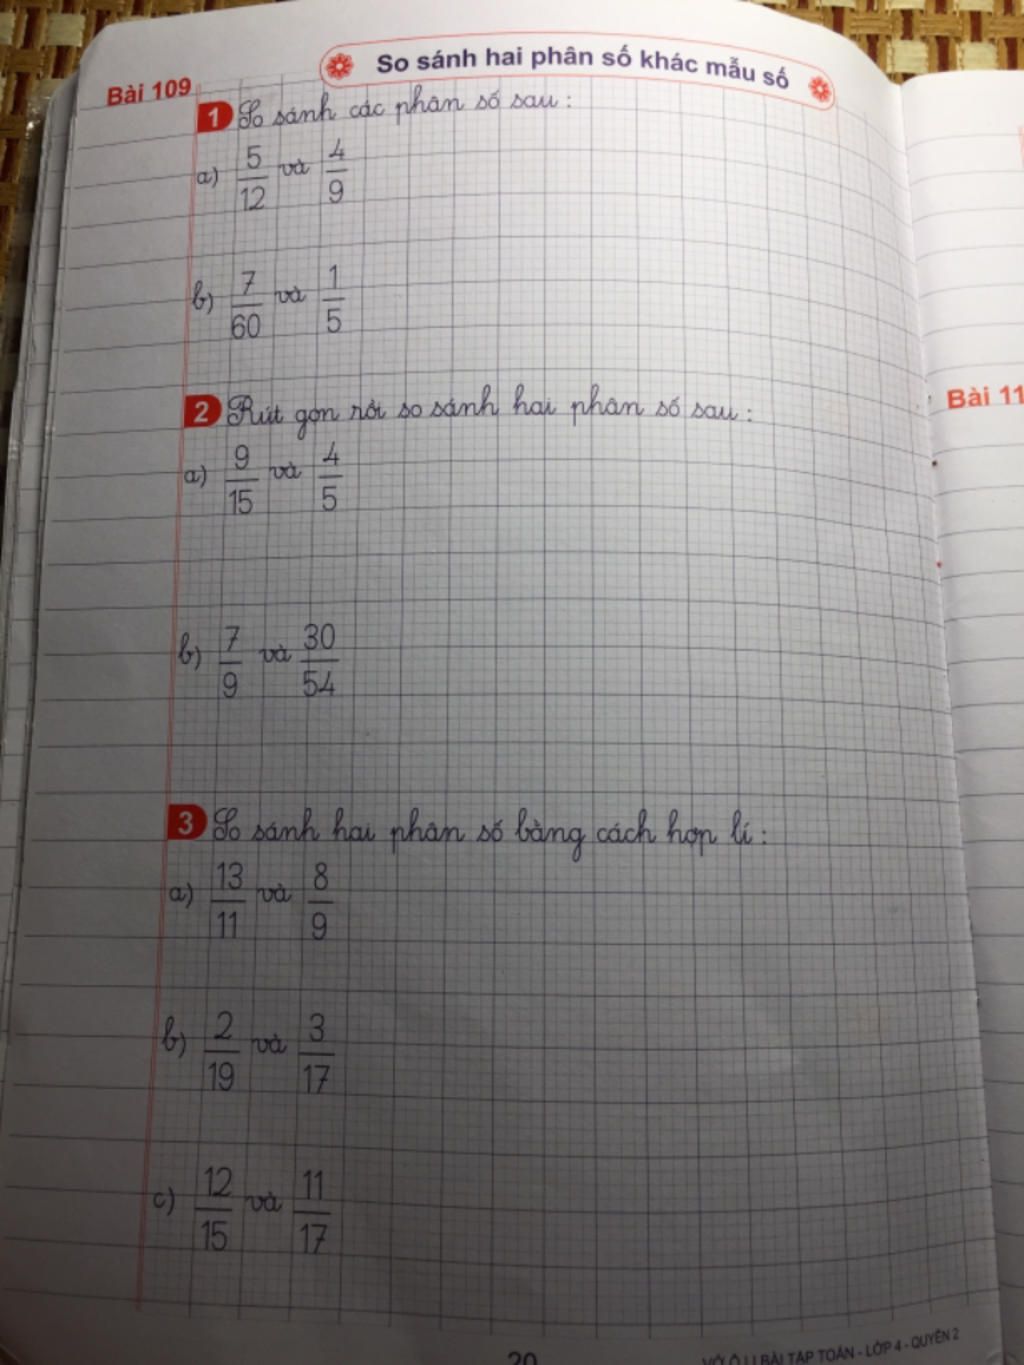 So sánh hai phân số khác mẫu số
Bài 109
1 So sánh các phân số sau :
a) 5/12 và 4/9
b) 7/60 và 1/5
2 Rút gọn rồi so sánh hai phân số sau :
a) 9/15 và 4/5
b) 7/9 và 30/54
3 So sánh hai phân số bằng cách hợp lí :
a) 13/11 và 8/9
b) 2/19 và 3/17
c) 12/15 và 11/17
20
VỞ Ô LI BÀI TẬP TOÁN - LỚP 4 - QUYỂN 2
Bài 11